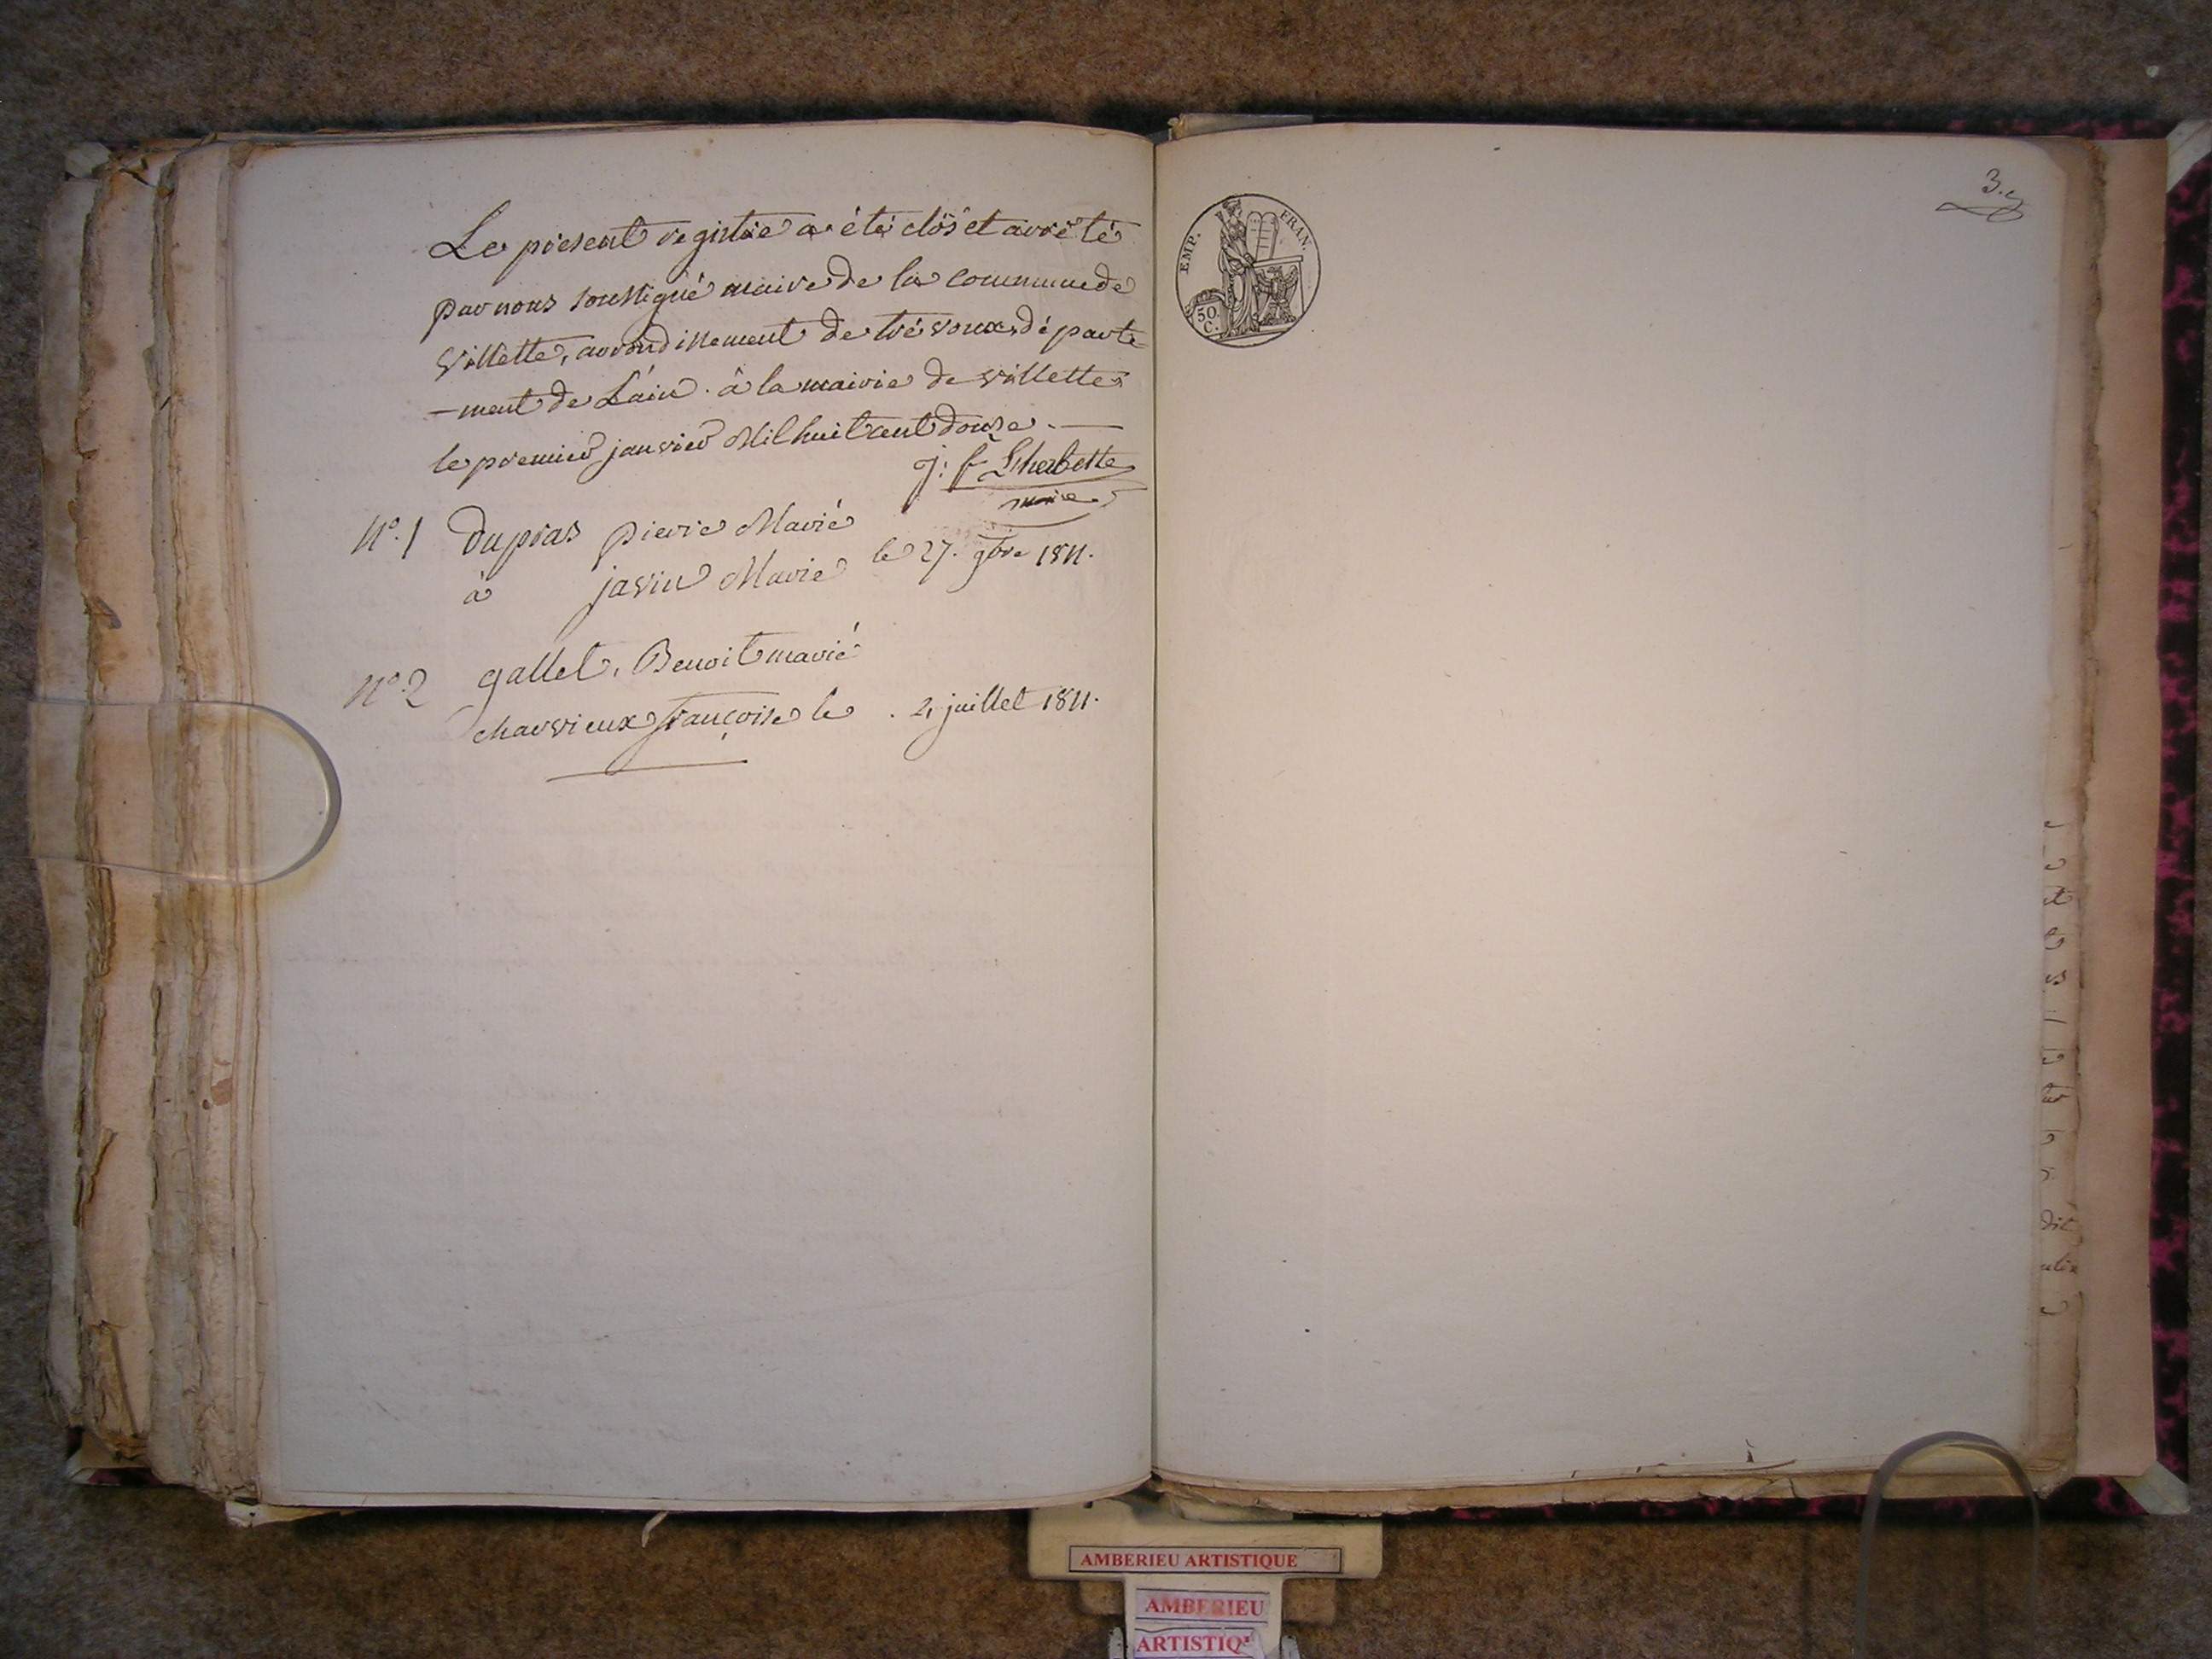 Le présent registre a été clôs et arrêté
par nous soussigné maire de la commune de
Villette, arrondissement de trévoux, départe-
-ment de L'ain. à la mairie de villette
le premier janvier Mil huit cent douze. —
j: f Lherbette
maire
N°. 1 dupras pierre Marié
à javin Marie le 27. 9bre 1811.
N°. 2 gallet, Benoit marié
charvieux françoise le . 2, juillet 1811.
3.
EMP. FRAN.
50.
C.
dit
AMBERIEU ARTISTIQUE
AMBERIEU
ARTISTIQ